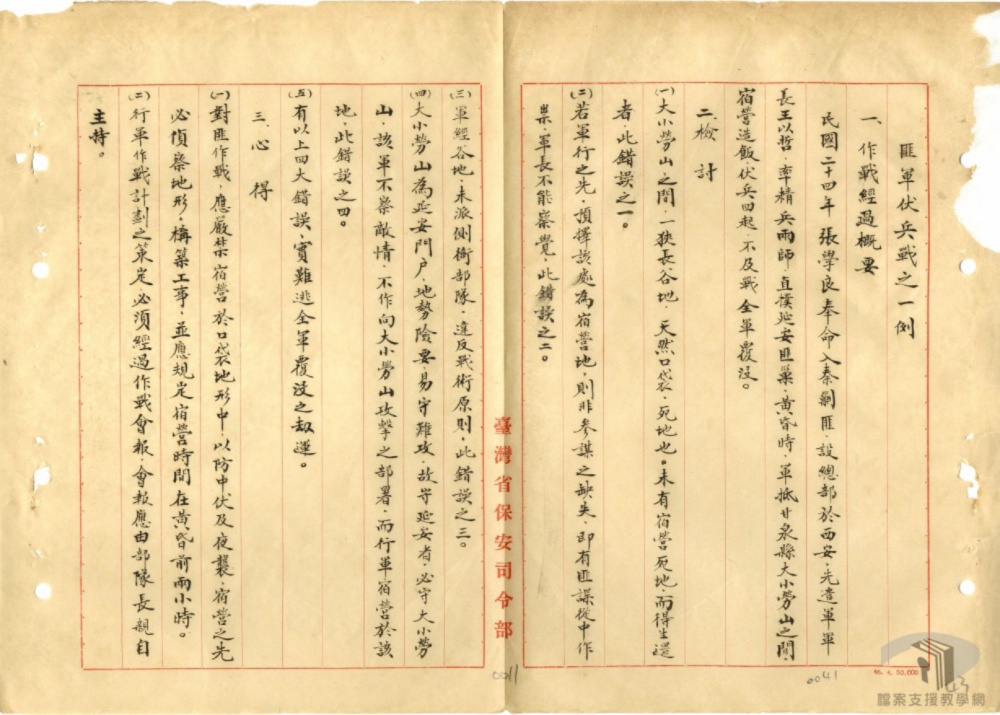 匪軍伏兵戰之一例
一、作戰經過概要
民國二十四年張學良奉命入秦剿匪、設總部於西安、先遣軍軍
長王以哲、率精兵兩師、直撲延安匪巢、黃昏時、軍抵甘泉縣大小勞山之間
宿營造飯、伏兵四起、不及戰全軍覆沒。
二、檢討
(一)大小勞山之間、一狹長谷地、天然口袋、死地也。未有宿營死地、而得生還
者、此錯誤之一。
(二)若軍行之先、預擇該處為宿營地、則非參謀之缺失、即有匪諜從中作
祟、軍長不能察覺、此錯誤之二。
(三)軍經谷地、未派側衛部隊、違反戰術原則、此錯誤之三。
(四)大小勞山為延安門戶、地勢險要、易守難攻、故守延安者、必守大小勞
山、該軍不察敵情、不作向大小勞山攻擊之部署、而行軍宿營於該
地、此錯誤之四。
(五)有以上四大錯誤、實難逃全軍覆沒之劫運。
三、心得
(一)對匪作戰、應嚴禁宿營於口袋地形中、以防中伏及夜襲、宿營之先
必偵察地形、構築工事、並應規定宿營時間在黃昏前兩小時。
(二)行軍作戰計劃之策定必須經過作戰會報、會報應由部隊長親自
主持。
臺灣省保安司令部
0011
0041
43
46. 4. 50,000
檔案支援教學網